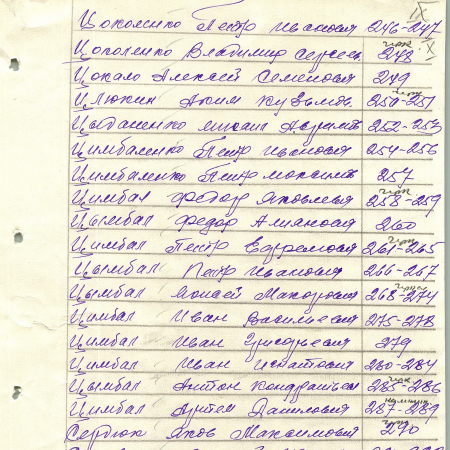 IX
Цоколенко Петр Иванович 246-247
Цоколенко Владимир Сергеев 248 X
Цокало Алексей Семенович 249
Цлюкин Аким Кузьмич 250-251
Цыбаненко Михаил 252-253
Цимбаленко Петр Иванович 254-256
Цимбаленко Петр Максимов 257
Цимбал Федор Яковлевич 258-259
Цымбал Федор 260
Цимбал Петр Ефремович 261-265
Цымбал Петр Иванович 266-267
Цымбал Моисей Макарович 268-274
Цимбал Иван Васильевич 275-278
Цимбал Иван 279
Цимбал Иван Игнатович 280-284
Цымбал Антон Кондратьев 285-286
Цимбал Артем Данилович 287-289
Сердюк Яков Максимович 290